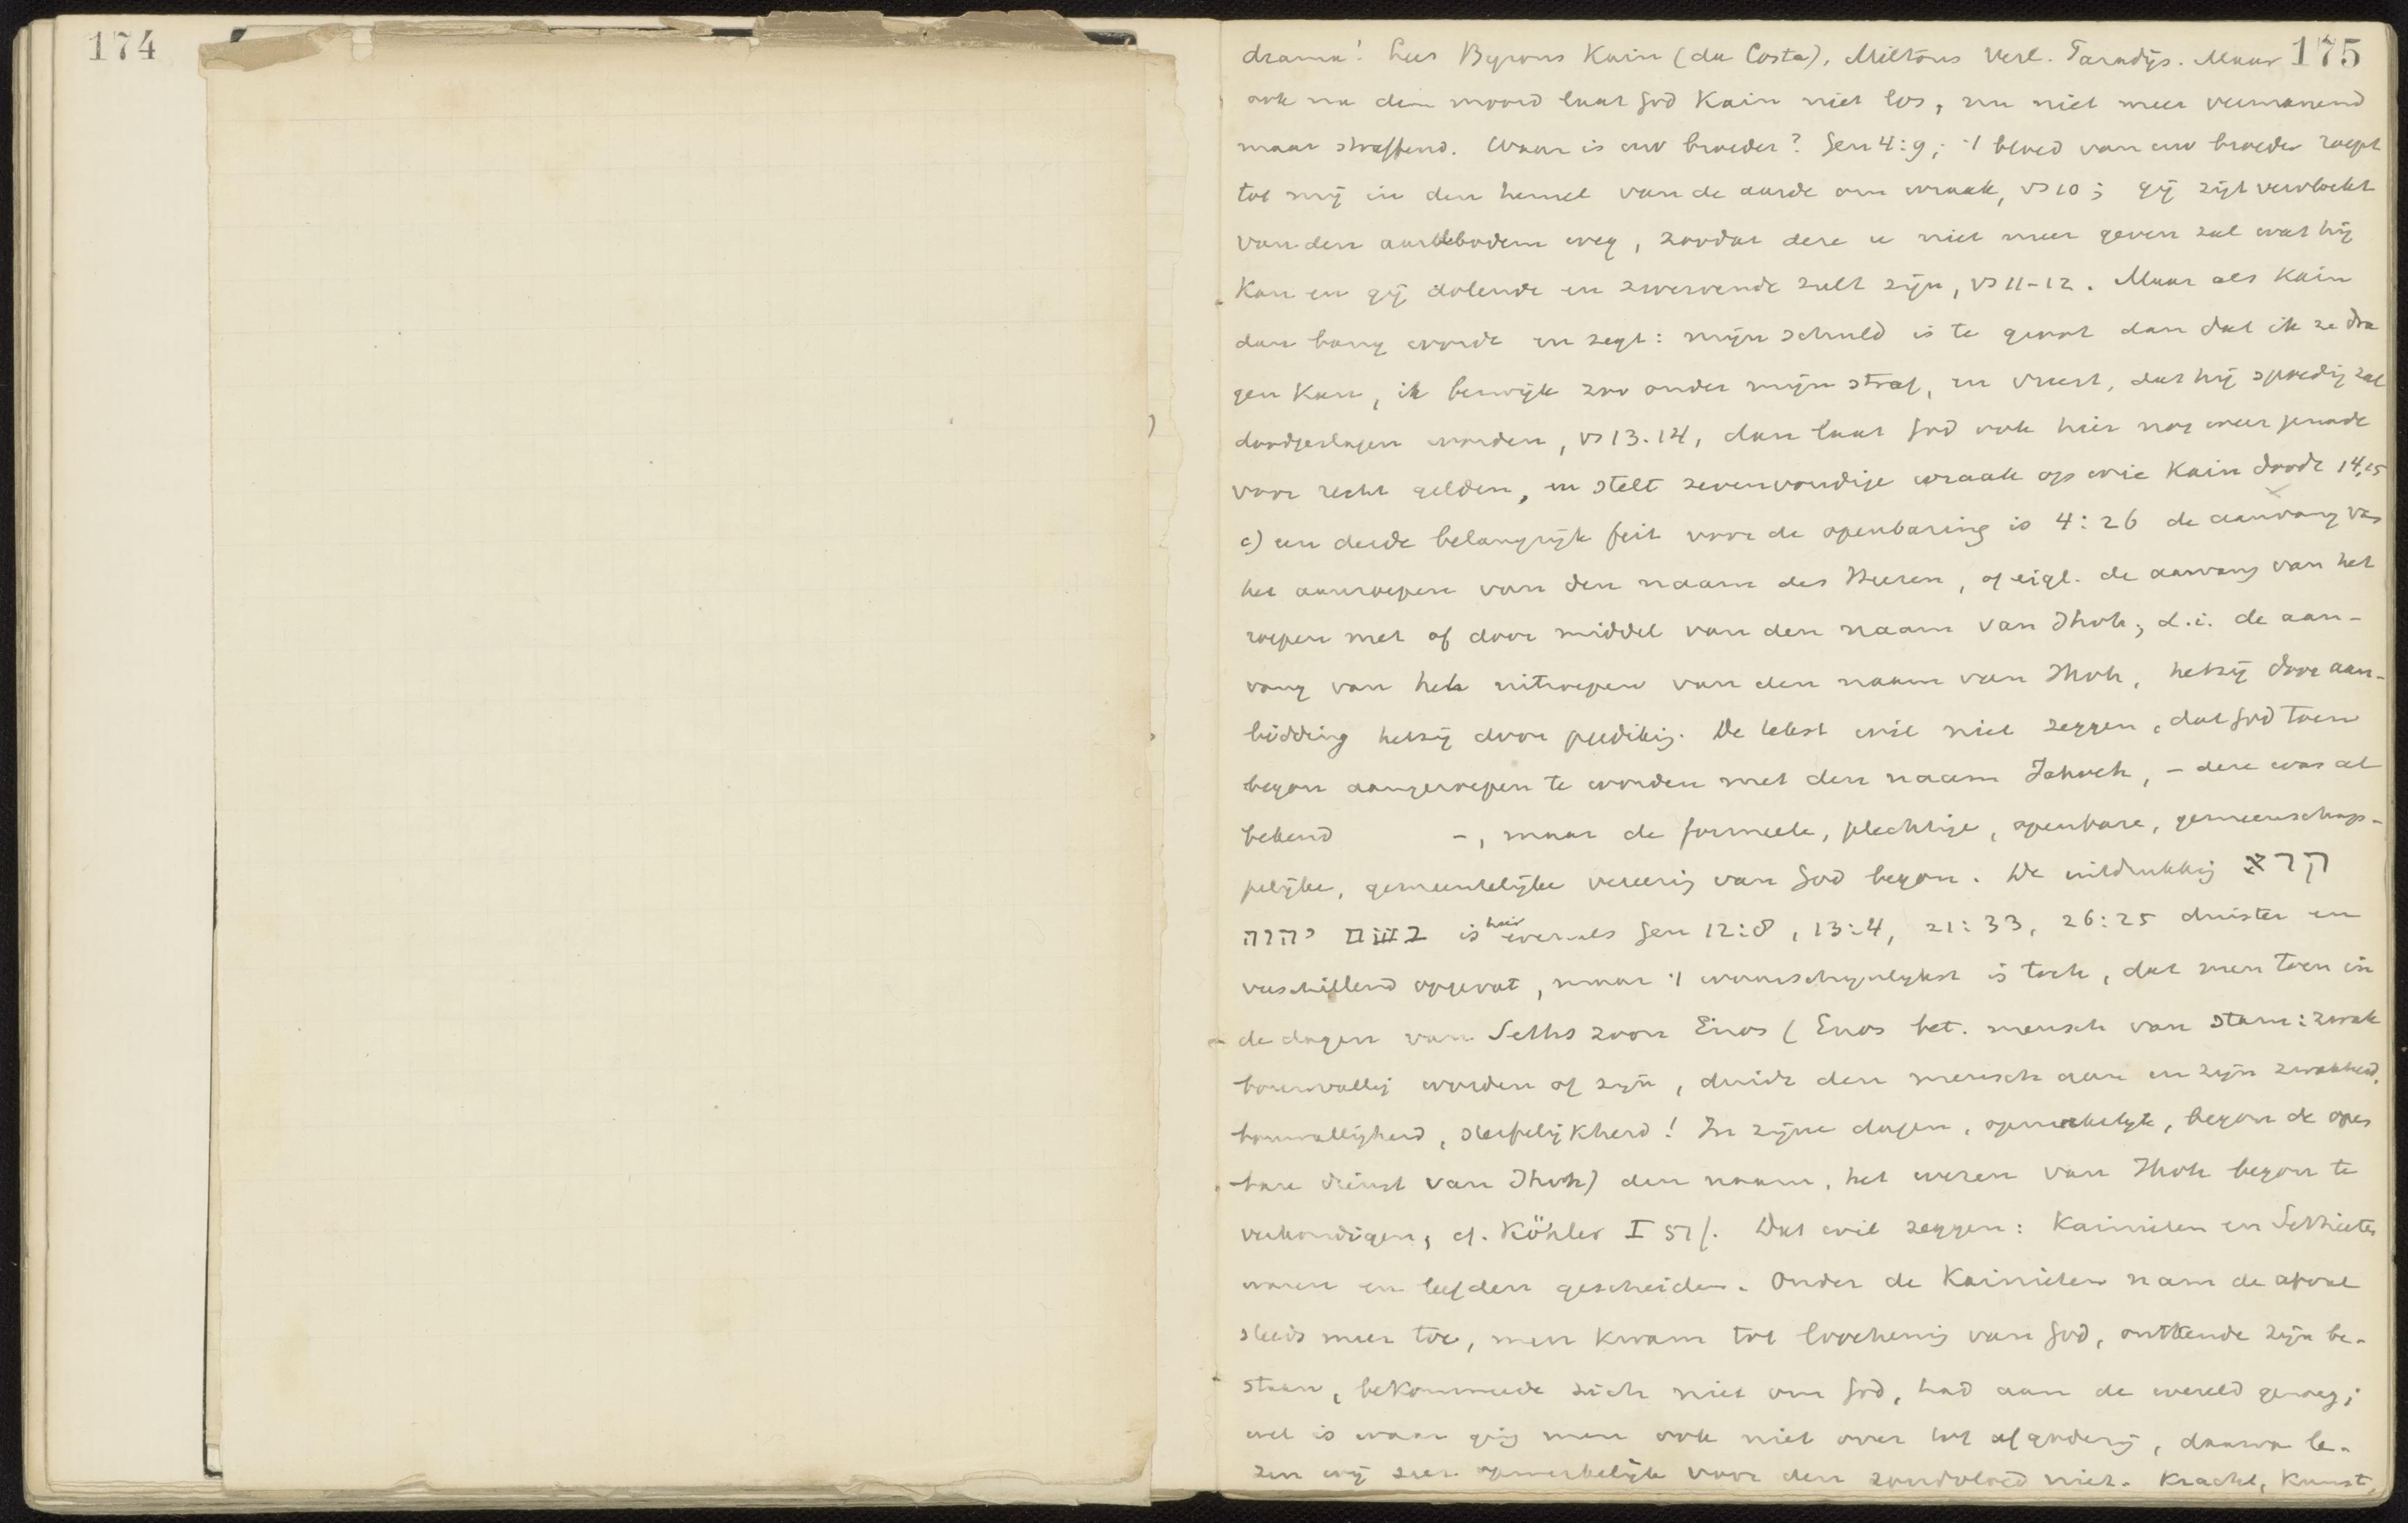 174
175
drama! Lees Byrons Kaïn (da Costa), Miltons Verl. Paradijs. Maar
ook na den moord laat God Kain niet los, nu niet meer vermanend
maar straffend. Waar is uw broeder? Gen 4:9; 't bloed van uw broeder roept
tot mij in den hemel van de aarde om wraak, vs 10; gij zijt vervloekt
van den aardbodem weg, zoodat deze u niet meer geven zal wat hij
kan en gij dolende en zwervende zult zijn, vs 11-12. Maar als Kain
dan bang wordt en zegt: mijn schuld is te groot dan dat ik ze dra
gen kan, ik bezwijk zoo onder mijn straf, en vreest, dat hij spoedig zal
doodgeslagen worden, vs 13.14, dan laat God ook hier nog weer genade
voor recht gelden, en stelt zevenvoudige wraak op wie Kain doodt 14,15
c) een derde belangrijk feit voor de openbaring is 4:26 de aanvang van
het aanroepen van den naam des Heeren, of eigl. de aanvang van het
roepen met of door middel van den naam van Jhvh, d.i. de aan-
vang van het uitroepen van den naam van Jhvh, hetzij door aan-
bidding hetzij door prediking. De tekst wil niet zeggen, dat God toen
begon aangeroepen te worden met den naam Jahveh, - deze was al
bekend -, maar de formeele, plechtige, openbare, gemeenschap-
pelijke, gemeentelijke vereering van God begon. De uitdrukking קרא
בשם יהוה is hier evenals Gen 12:8, 13:4, 21:33, 26:25 duister en
verschillend opgevat, maar 't waarschijnlijkst is toch, dat men toen in
de dagen van Seths zoon Enos (Enos bet. mensch van stam: zwak
bouwvallig worden of zijn, duidt den mensch aan in zijn zwakheid,
bouwvalligheid, sterfelijkheid! In zijne dagen, opmerkelijk, begon de open
bare dienst van Jhvh) den naam, het wezen van Jhvh begon te
verkondigen, cf. Köhler I 51/. Dat wil zeggen: Kainieten en Sethieten
waren en leefden gescheiden. Onder de Kainieten nam de afval
steeds meer toe, men kwam tot loochening van God, ontkende zijn be-
staan, bekommerde zich niet om God, had aan de wereld genoeg;
wel is waar ging men ook niet over tot afgoderij, daarvan le-
zen wij zeer opmerkelijk voor den zondvloed niet. Kracht, Kunst,